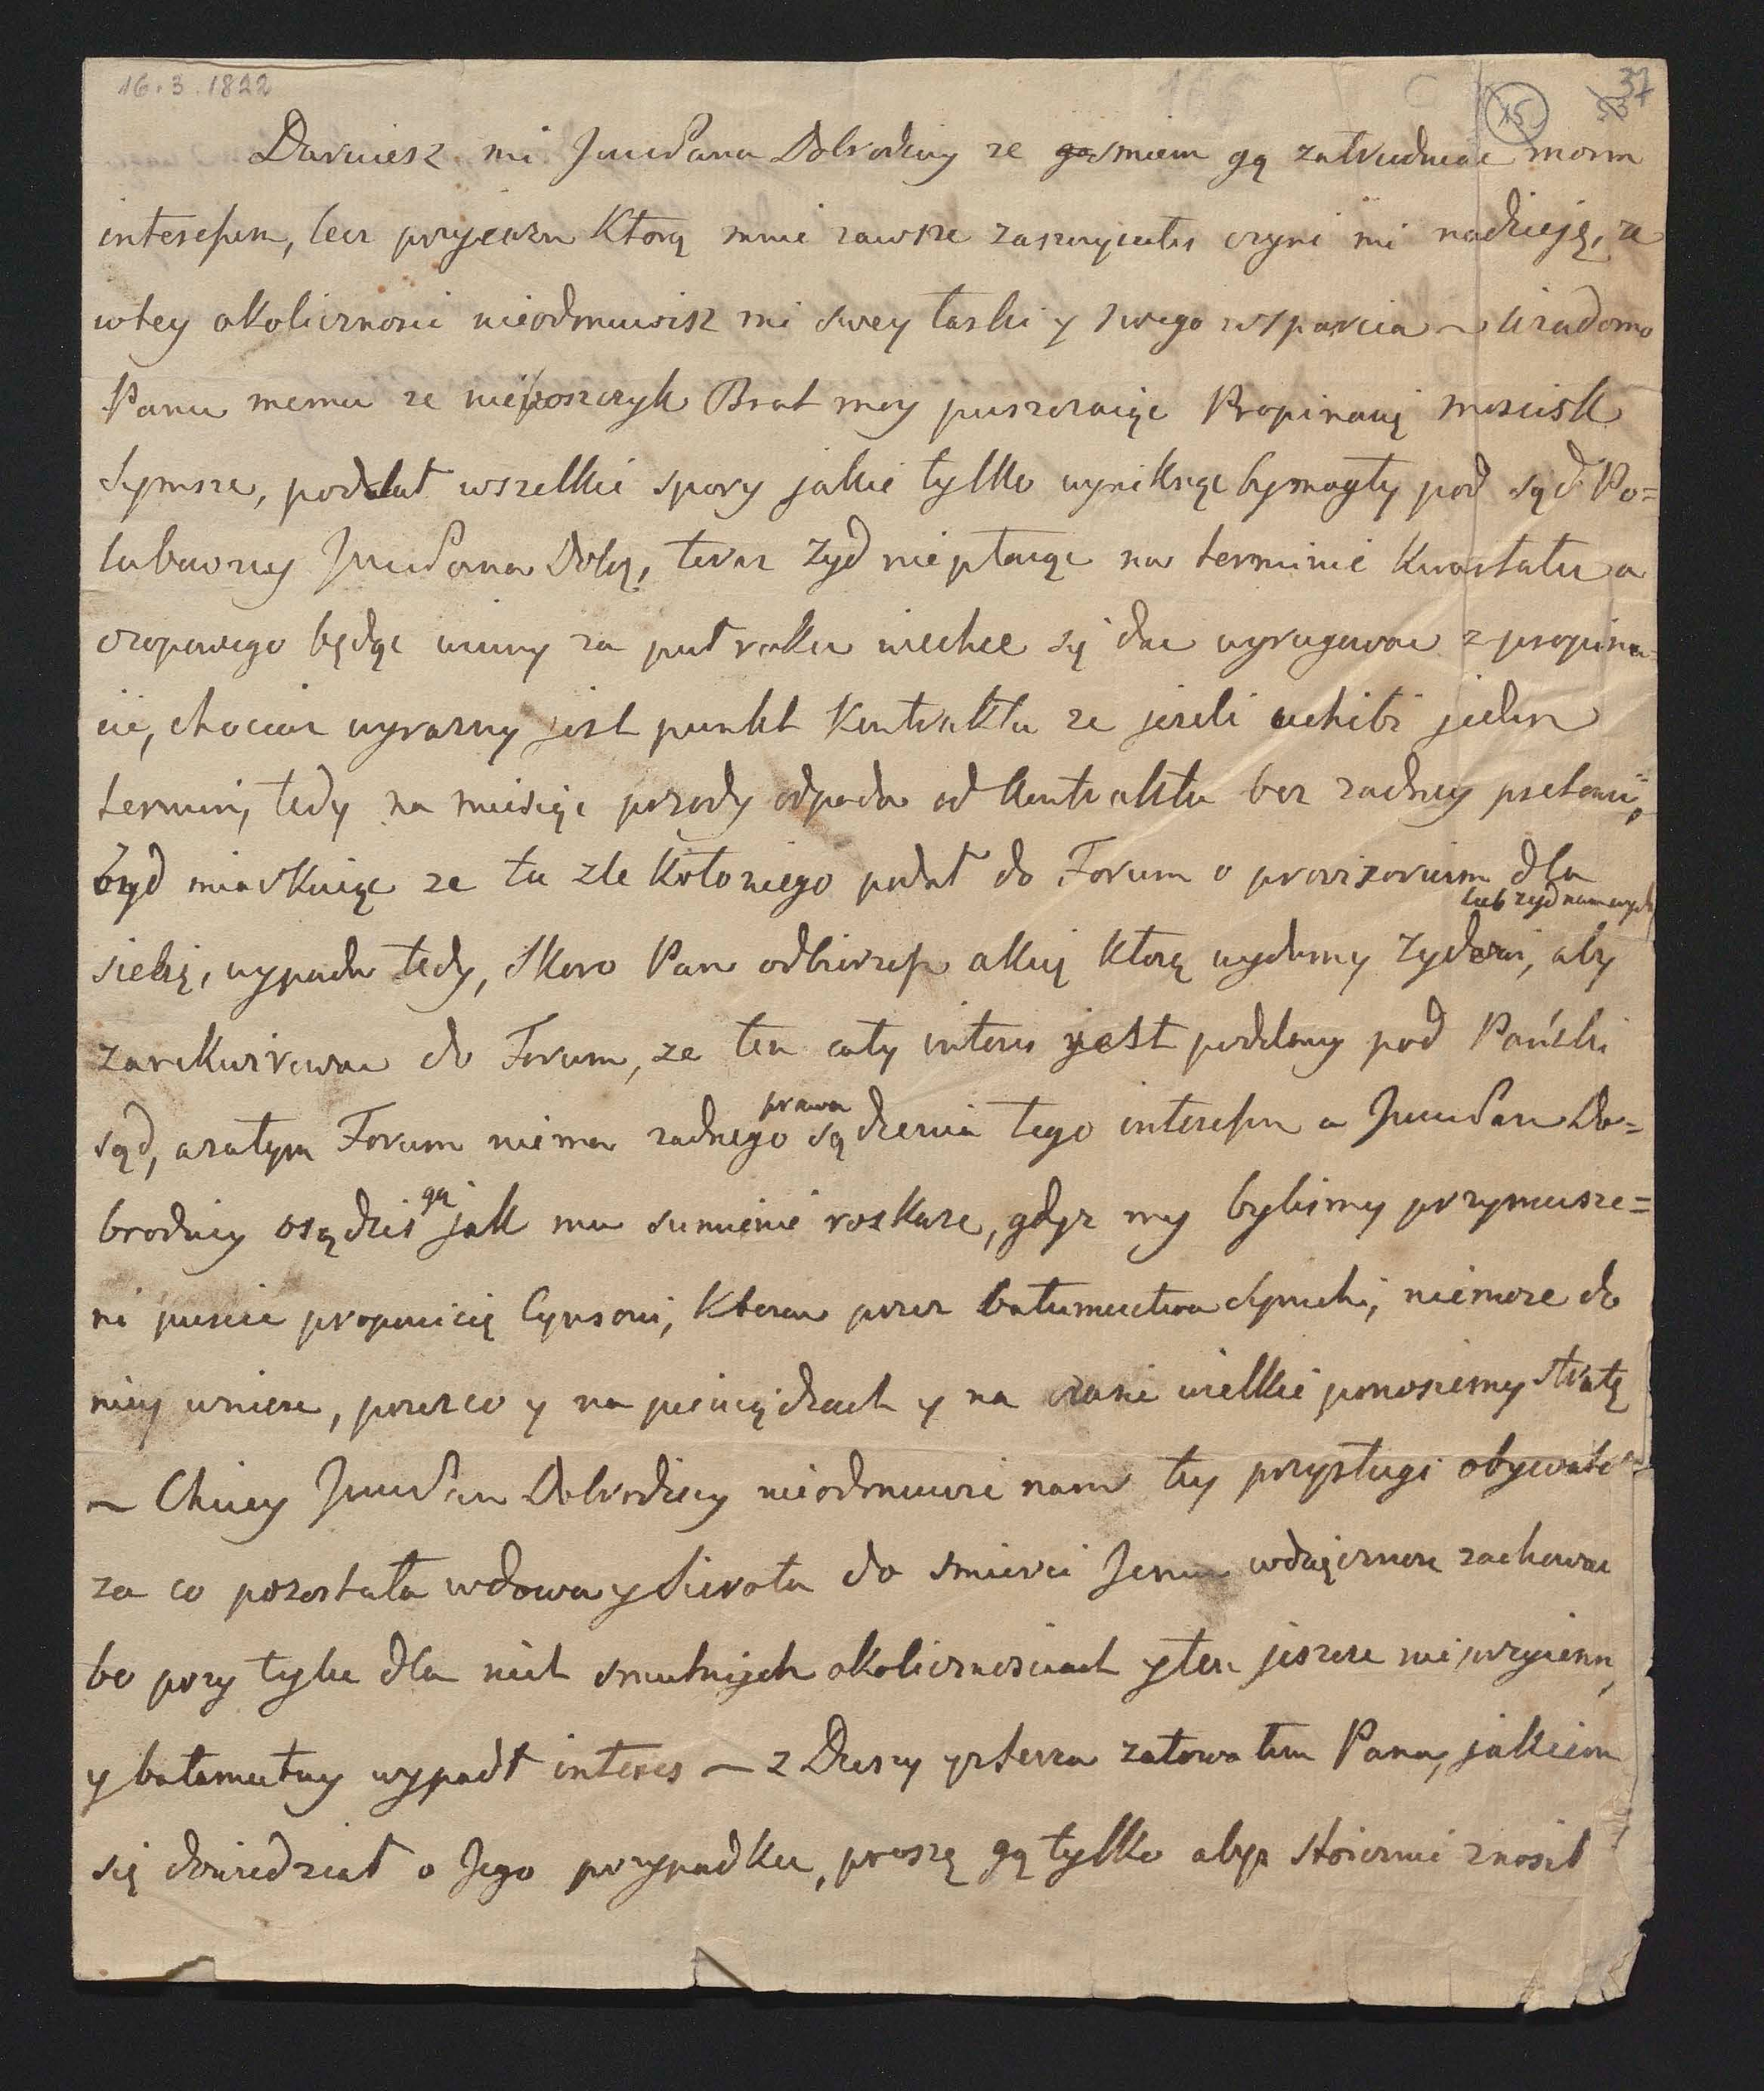 16.3.1822
15
37
Daruiesz mi JmciPana Dobrodziey ze smiem gą zatrudniac moim
interessem, lecz przyiazn Ktorą mnie zawsze zaszczycałes czyni mi nadzieję, ze
wtey okolicznosci nieodmuwisz mi swey łaski y swego wsparcia ~ Wiadomo
Panu memu ze nieboszczyk Brat moy puszczaiąc Propinacię moscisk
Symsze, poddał wszelkie spory jakie tylko wyniknąc bymogły pod sąd Po=
lubowny JmciPana Dobą, teraz Zyd niepłacąc na terminie Kwartału a
czopowego będąc winny za puł roku niechce się dac wyrugowac z propina=
cii, chociaz wyrazny jest punkt Kontraktu ze jezeli uchibi jeden
termin, tedy na miesiąc przody odpada od Kontraktu bez zadney pretensii,
Zyd miarkuiąc ze tu zle koło niego podał do Forum o provizorium dla
lub zyd nam wyda
siebię, wypada tedy, skoro Pan odbierzesz akcię ktorą wydamy Zydowi, aby
zarekwirowac do Forum, ze ten cały interes jest poddany pod Pański
prawa
sąd, azatym Forum niema zadnego sądzenia tego interessu a JmciPan Do=
gą
brodziey osądzis jak mu sumienie roskaze, gdyz my bylismy przymusze=
ni puscic propinicię Cynsowi, Ktoren przez bałumuctwa Symchi, niemoze do
niey wniesc, przezco y na pieniądzach y na czasie wielkie ponosiemy stratę
~ Chciey JmciPan Dobrodziey nieodmuwic nam tey przysługi obywatel=
za co pozostała wdowa y Sierota do smierci Jemu wdzięcznosc zachowac
bo przy tylu dla nich smutnych okolicznosciach y ten jeszcze nieprzyiemny
y bałamutny wypadł interes ~ z Duszy y z serca załowałem Pana, jakiem
się dowiedział o Jego przypadku, proszę gą tylko abys skromnie znosił